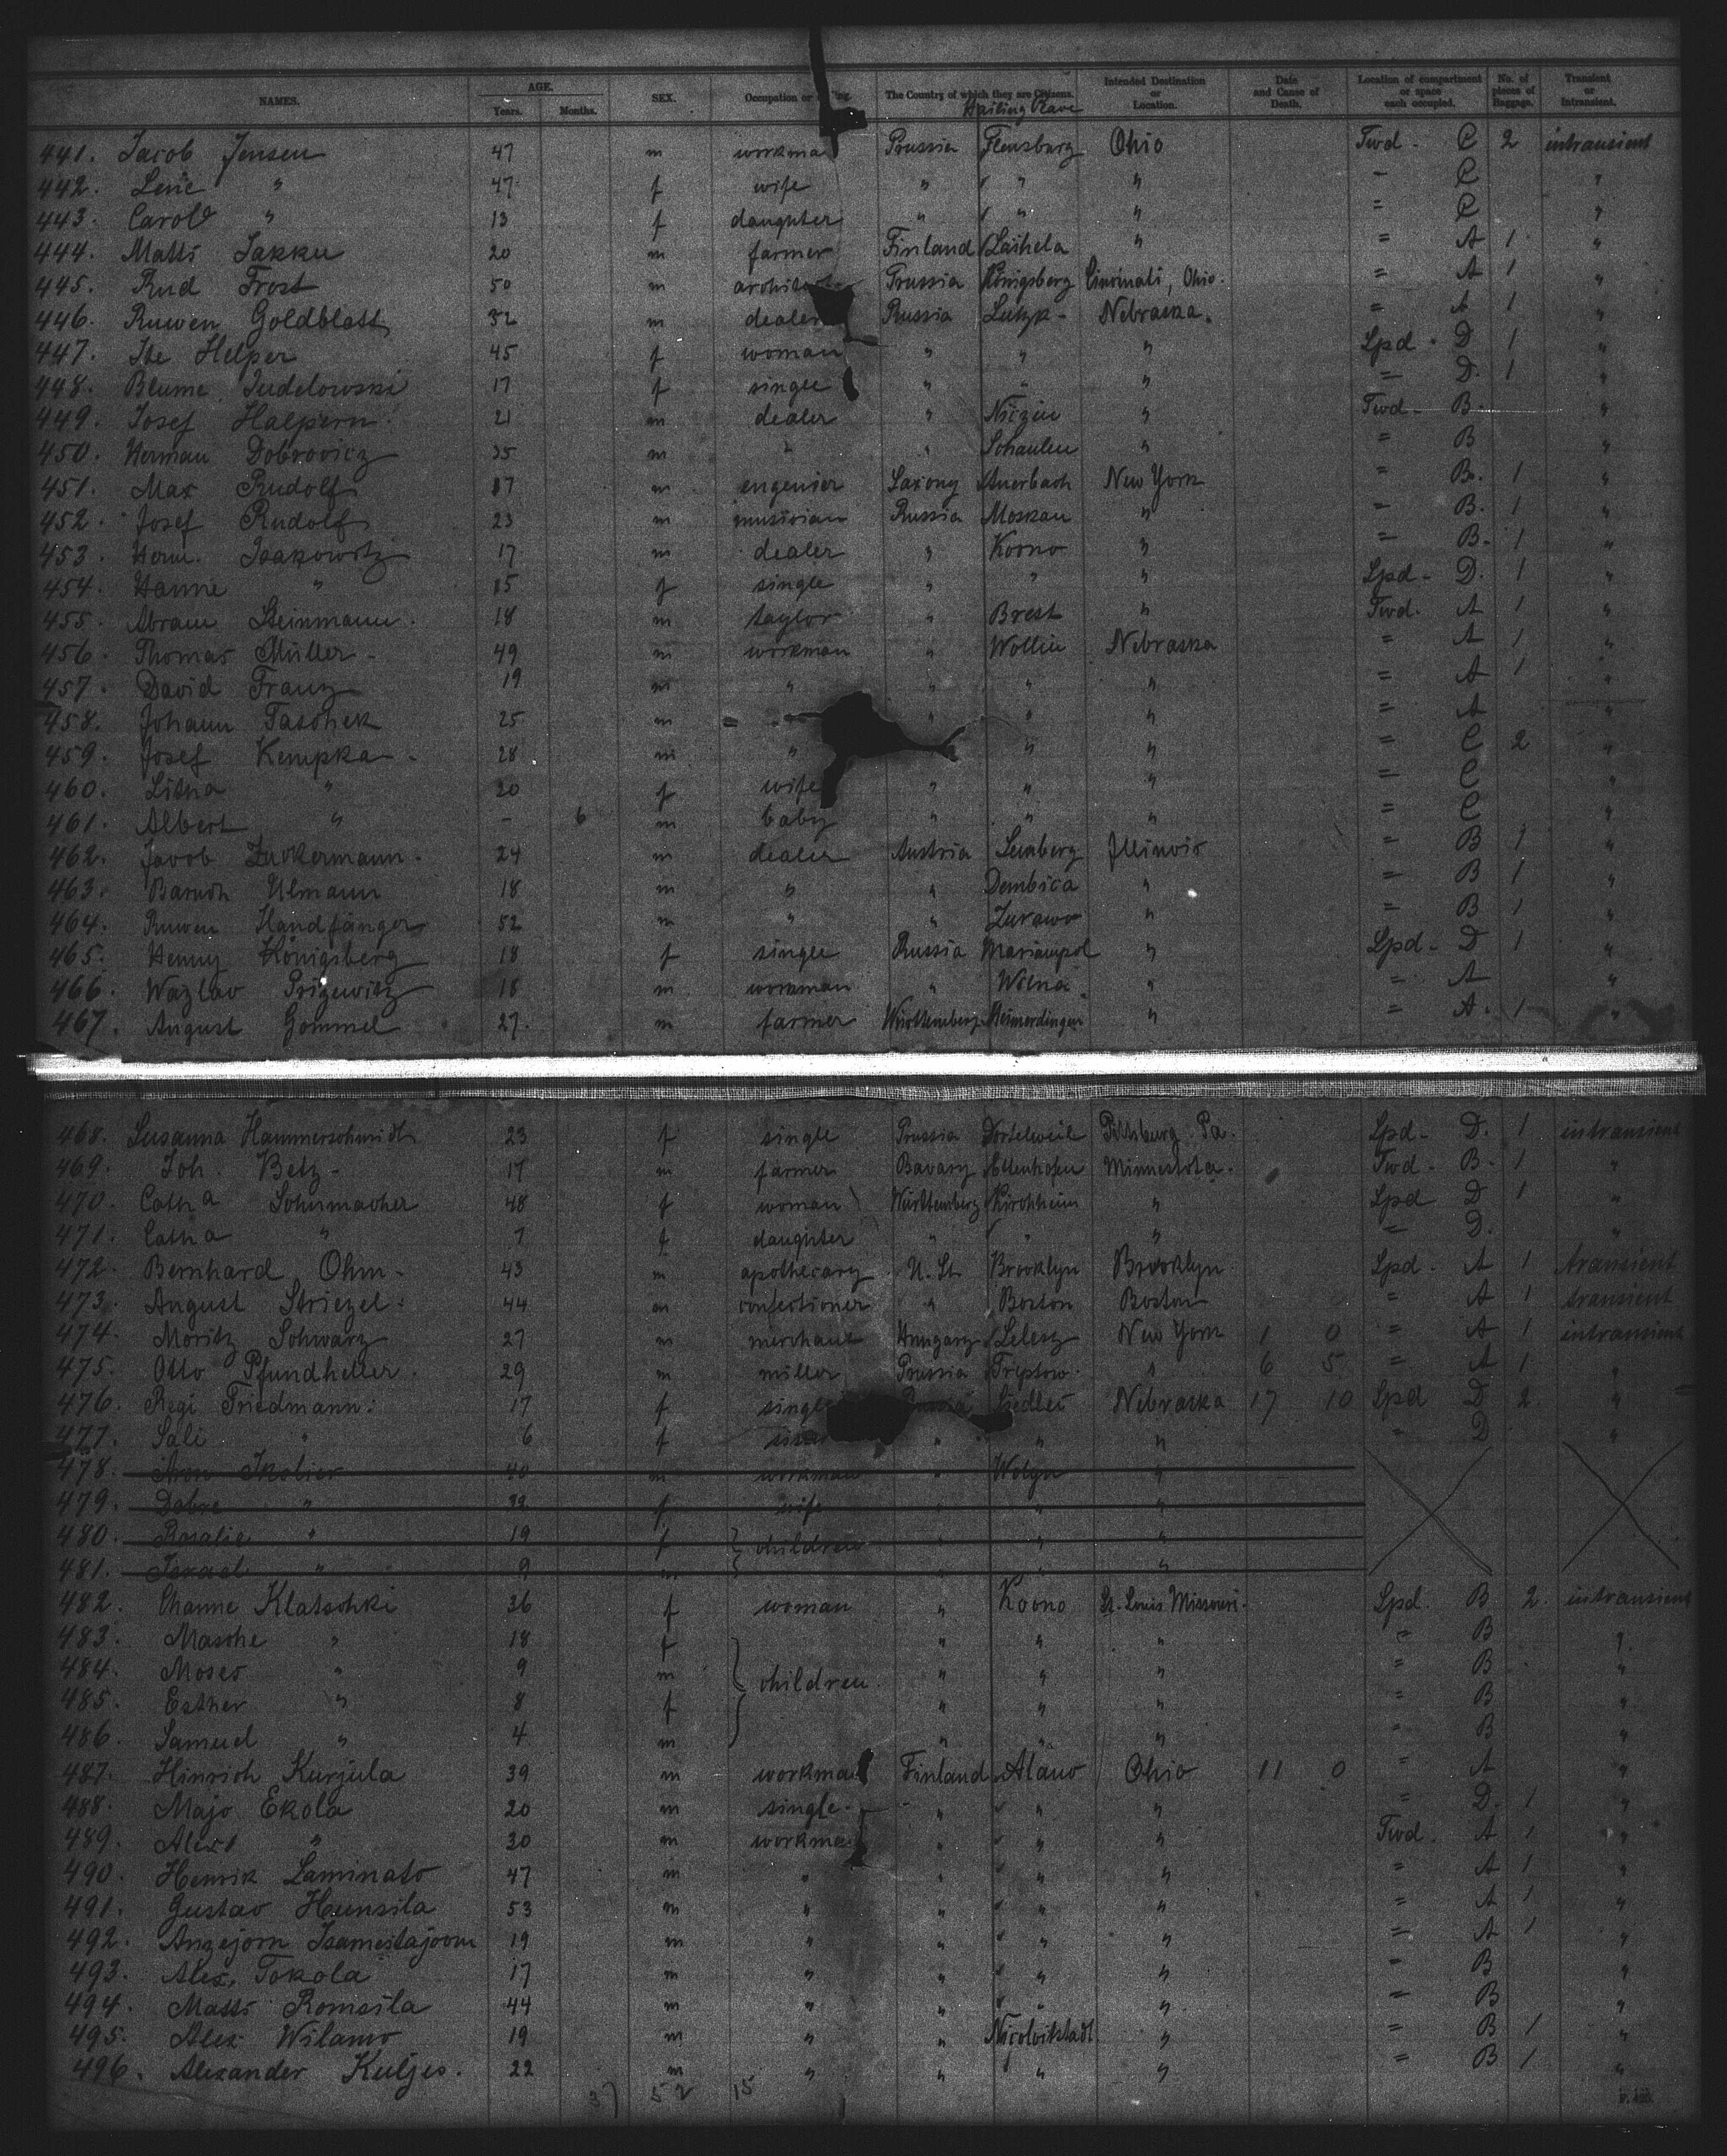 NAMES. AGE. Years. Months. SEX. Occupation or The Country of which they are Citizens. Intended Destination or Location. Date and Cause of Death. Location of compartment or space each occupied. No. of pieces of Baggage. Transient or Intransient.
Hailing Place
441. Jacob Jensen 47 m workma Prussia Flensburg Ohio Twd - C 2 intransient
442. Lene " 47 f wife " " " - C "
443. Carol " 13 f daughter " " " = C "
444. Matts Jakku 20 m farmer Finland Laihela " = A 1 "
445. Rud Frost 50 m Prussia Königsberg Cincinati, Ohio. = A 1 "
446. Ruwen Goldblatt 32 m dealer Russia Lutzk - Nebraska. = A 1 "
447. Ite Helper 45 f woman " " " Spd - D 1 "
448. Blume Judelowski 17 f single " " " = D. 1 "
449. Josef Halpern 21 m dealer " " Twd - B. "
450. Herman Dobrovicz 35 m " " Schaulen " = B "
451. Max Rudolf 37 m engenier Saxony Auerbach New York = B. 1 "
452. Josef Rudolf 23 m musician Russia Moskau " - B. 1 "
453. Herm. Isakowitz 17 m dealer " Kovno " = B. 1 "
454. Hanne " f single " " " Spd - D. 1 "
455. Abram Steinmann. 18 m taylor " Brest " Twd. A 1 "
456. Thomas Müller - 49 m workman " Wollin Nebraska = A 1 "
457. David Franz 19 m " " " " = A 1 "
458. Johann Taschek 25 m = " " " = A "
459. Josef Kempka - 28 m " " " = C 2 "
460. " 20 f wife " " " = C "
461. Albert " - 6 m baby " " " = C "
462. Jacob Zuckermann. 24 m dealer Austria Lemberg Illinois = B 1 "
463. Baruch Ulmann 18 m " " Dembica " = B 1 "
464. Ruwen Handfänger 52 m " " Zurawo " = B 1 "
465. Henny Königsberg 18 f single Russia Mariampol " Spd - D 1 "
466. Wazlav 18 m workman " Wilna " = A "
467. August Gommel 27. m farmer Württemberg " = A. 1 "
468. Susanna Hammerschmidt 23 f single Prussia Dortelweil Pittsburg Pa. Spd - D. 1 intransient
469. Joh. Betz - 17 m farmer Bavary Minnesota. Twd - B. 1 "
470. Catha Schumacher 48 f woman Württemberg Kirchheim " Spd D 1 "
471. Catha " 7 f daughter " " " = D. "
472. Bernhard Ohm - 43 m apothecary U. St. Brooklyn Brooklyn. Spd. A 1 transient
473. August Striezel 44 m confectioner " Boston Boston = A 1 transient
474. Moritz Schwarz 27 m merchant Hungary Lelesz New York 1 0 = A 1 intransient
475. Otto Pfundheller. 29 m miller Prussia Treptow. " 6 5 = A 1 "
476. Regi Friedmann. 17 f single Nebraska 17 10 Spd D 2 "
477. Sali " 6 f " " " = D "
478. 40 m workman " Wolyn "
479. Dobre " 39 f wife " " "
480. Rosalie " 19 f children " " "
481. Israel " 9 m " " "
482. Channe Klatschki 36 f woman " Kovno St. Louis Missouri. Spd. B 2. intransient
483. Masche " 18 f " " " = B "
484. Moses " 9 m children " " " = B "
485. Esther " 8 f " " " = B "
486. Samuel " 4 m " " " = B "
487. Hinrich Kurjula 39 m workma Finland Alavo Ohio 11 0 = A "
488. Majo Ekola 20 m single. " " " = D. 1 "
489. " 30 m workma " " " Twd. A 1 "
490. Henrik Laminato 47 m " " " " = A 1 "
491. Gustav Hunsila 53 m " " " " = A 1 "
492. 19 m " " " " = A 1 "
493. Alex. Tokola 17 m " " " " = B "
494. Matts Romsila 44 m " " " " = B "
495. Alex Wilamo 19 m " " " = B 1 "
496. Alexander Kuljes. 22 m " " " " = B 1 "
37 52 15